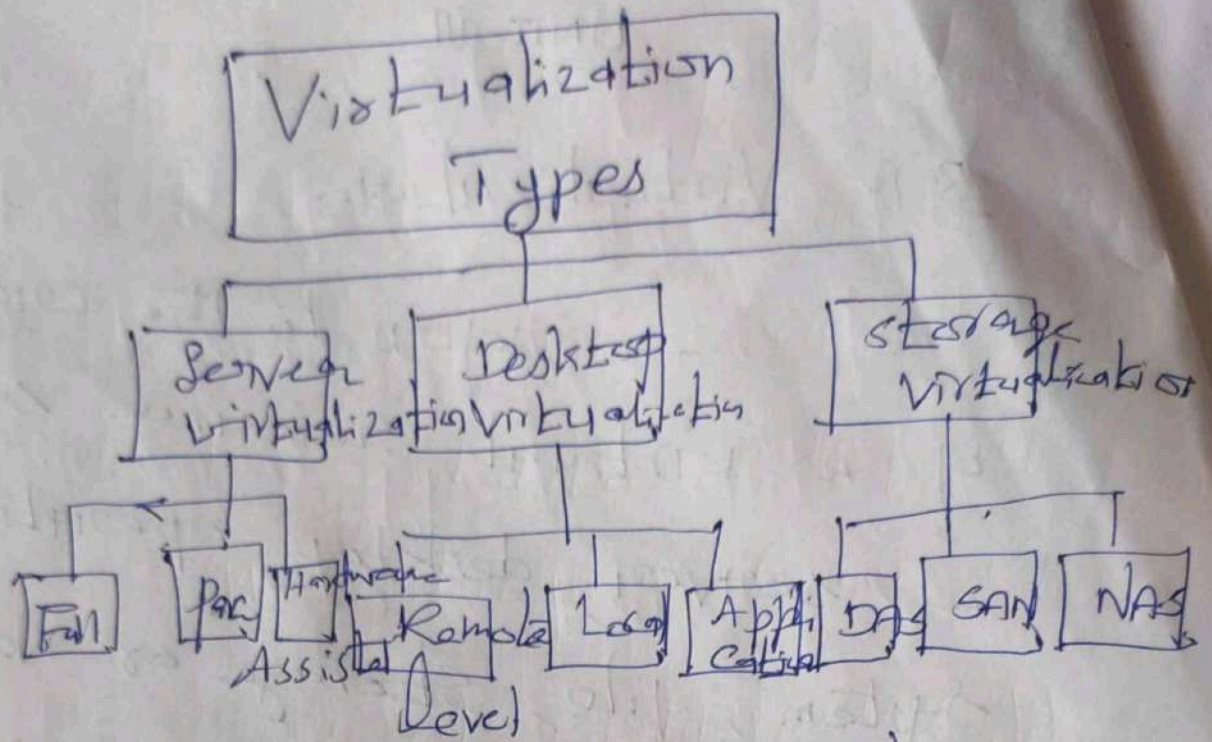 Virtualization
Types
Server
virtualization
Desktop
virtualization
Storage
virtualization
Full
Para
Hardware
Assisted
Remote
Level
Local
Appli
cation
DAS
SAN
NAS